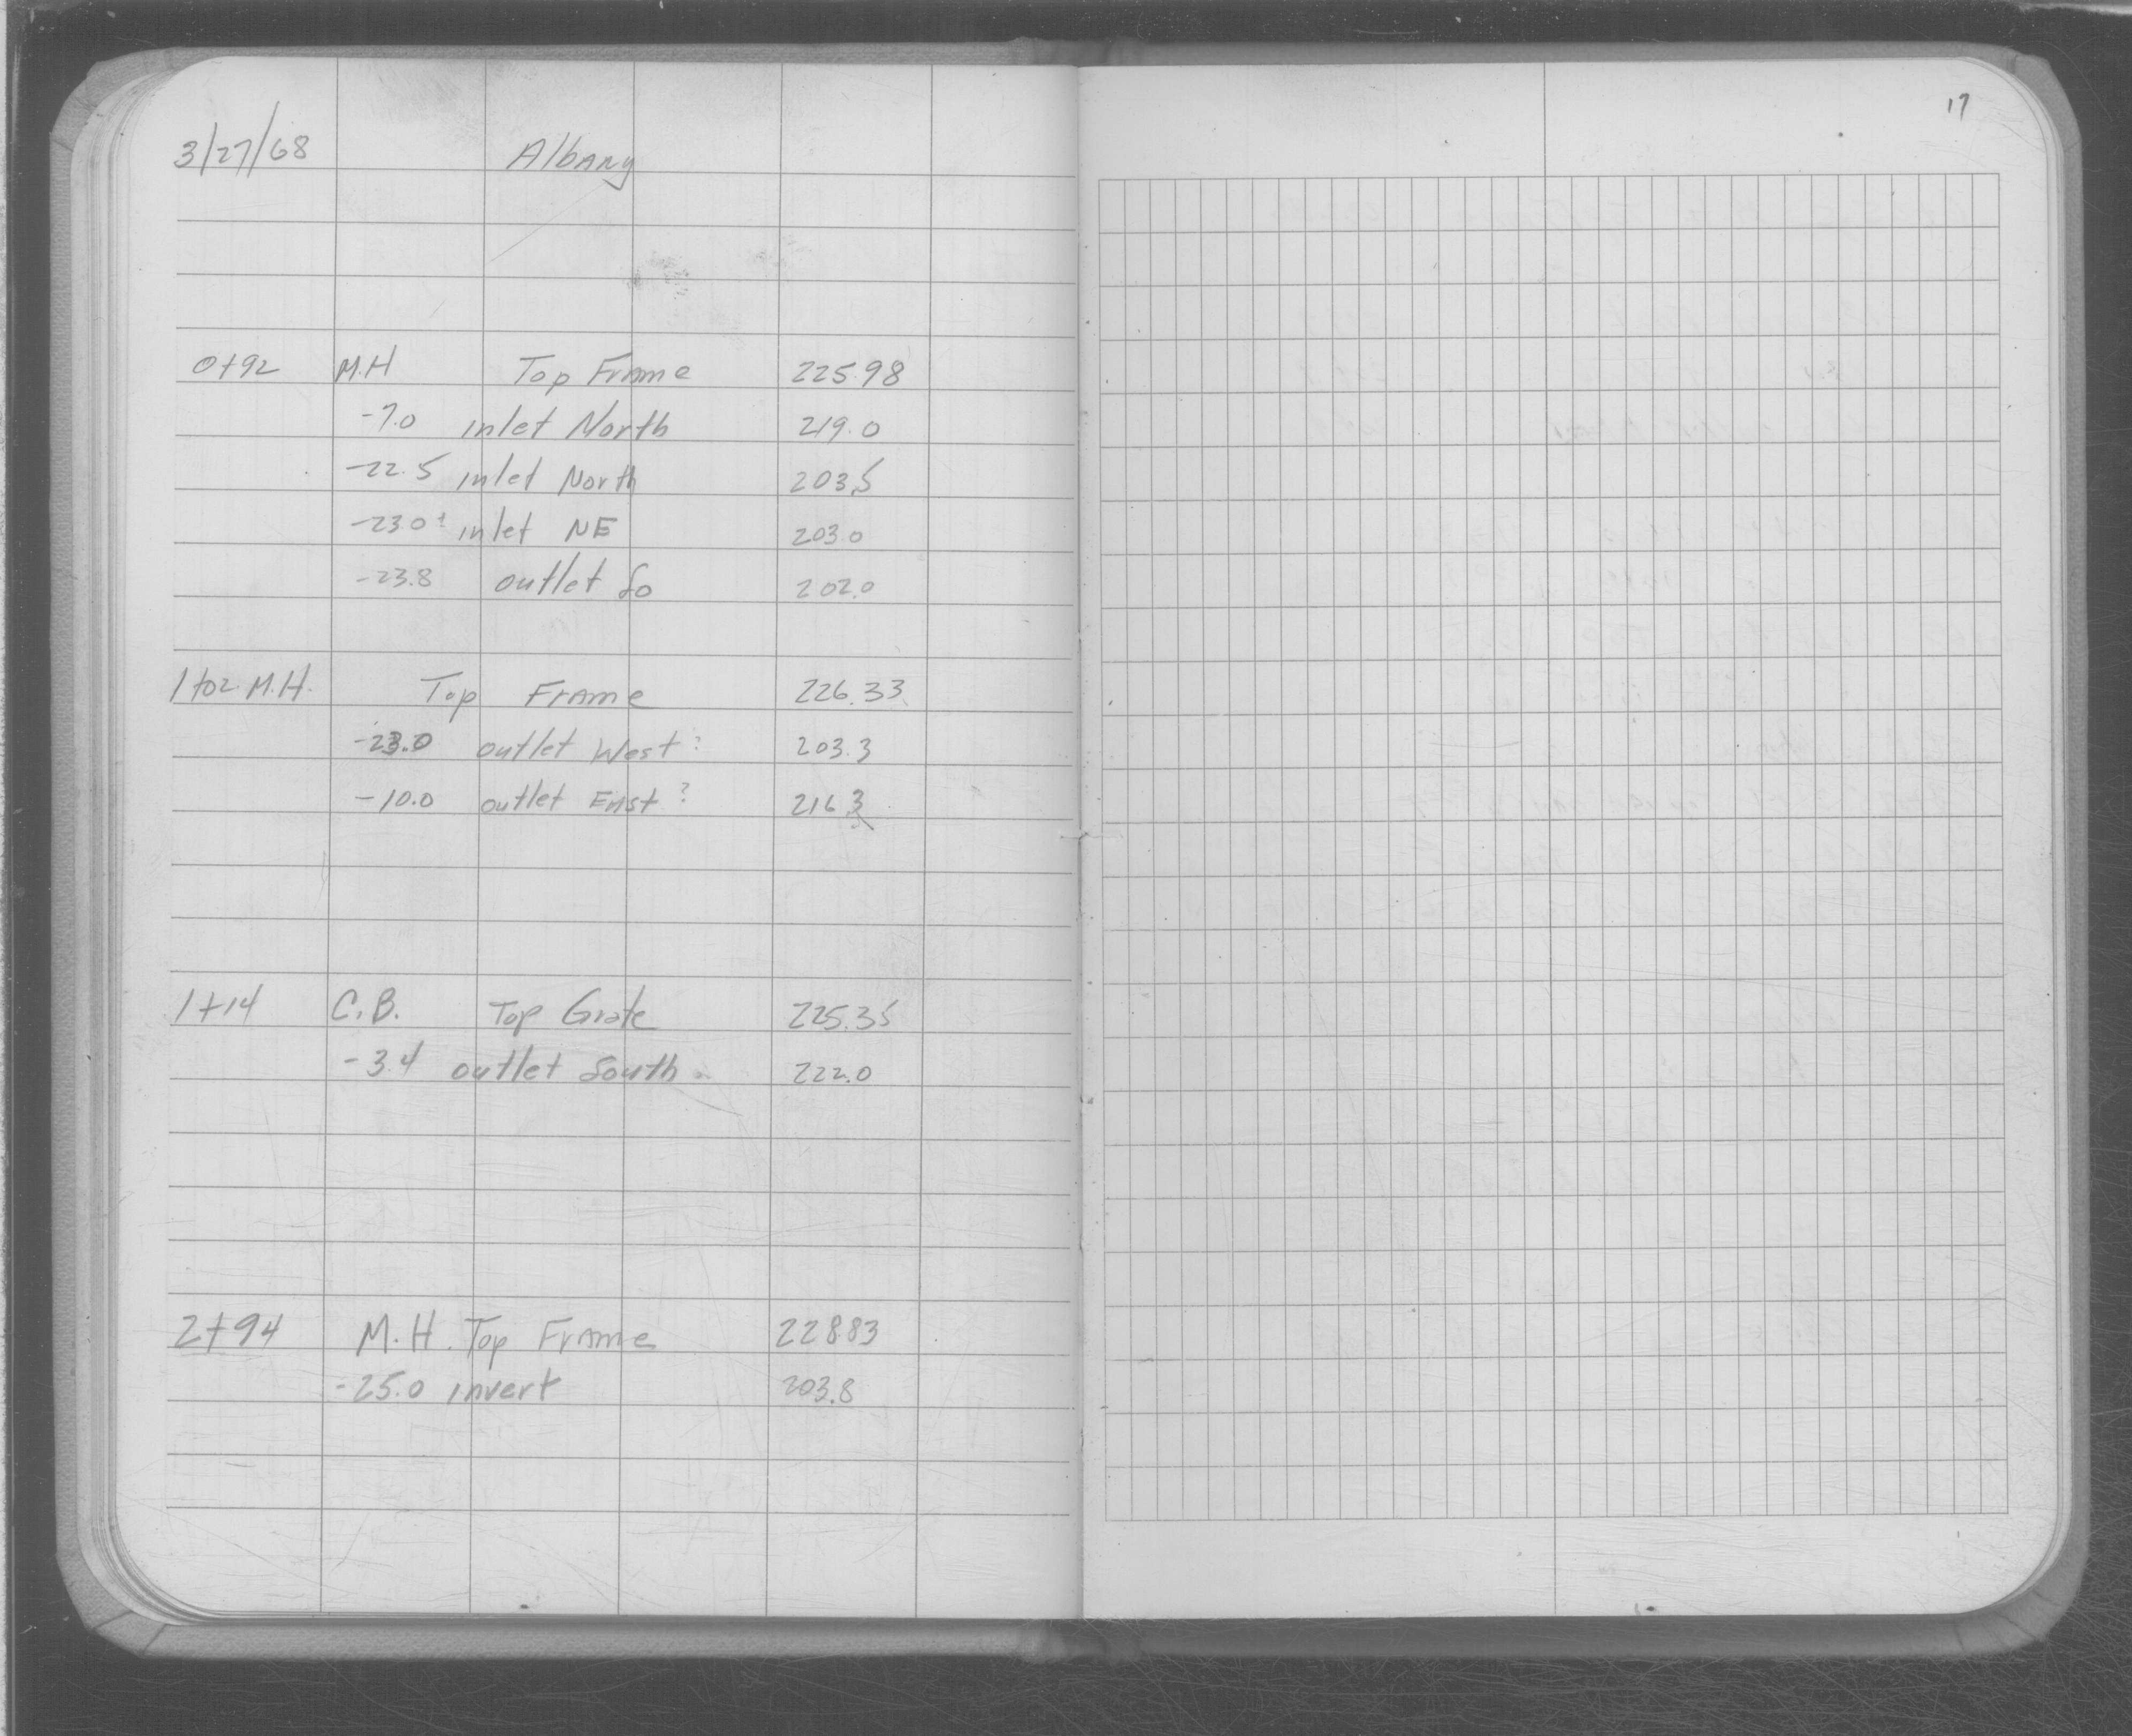 17
3/27/68 Albany
0+92 M.H Top Frame 225.98
-7.0 inlet North 219.0
-22.5 inlet North 203.5
-23.0± inlet NE 203.0
-23.8 outlet So 202.0
1+02 M.H. Top Frame 226.33
-23.0 outlet West? 203.3
-10.0 outlet East? 216.3
1+14 C.B. Top Grate 225.35
-3.4 outlet South 222.0
2+94 M.H. Top Frame 228.83
-25.0 invert 203.8